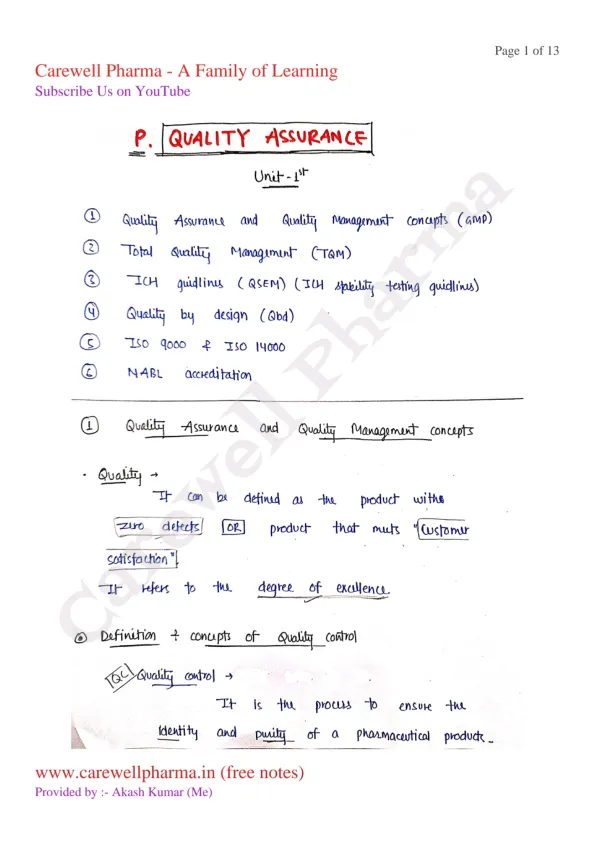 Page 1 of 13
Carewell Pharma - A Family of Learning
Subscribe Us on YouTube
P. QUALITY ASSURANCE
Unit - 1st
① Quality Assurance and Quality Management concepts (GMP)
② Total Quality Management (TQM)
③ ICH guidlines (QSEM) (ICH stability testing guidlines)
④ Quality by design (Qbd)
⑤ ISO 9000 & ISO 14000
⑥ NABL accreditation
① Quality Assurance and Quality Management concepts
• Quality →
It can be defined as the product with
zero defects OR product that meets "Customer
satisfaction".
It refers to the degree of excellence
Definition ÷ concepts of Quality control
QC Quality control →
It is the process to ensure the
Identity and purity of a pharmaceutical product..
Carewell Pharma
www.carewellpharma.in (free notes)
Provided by :- Akash Kumar (Me)